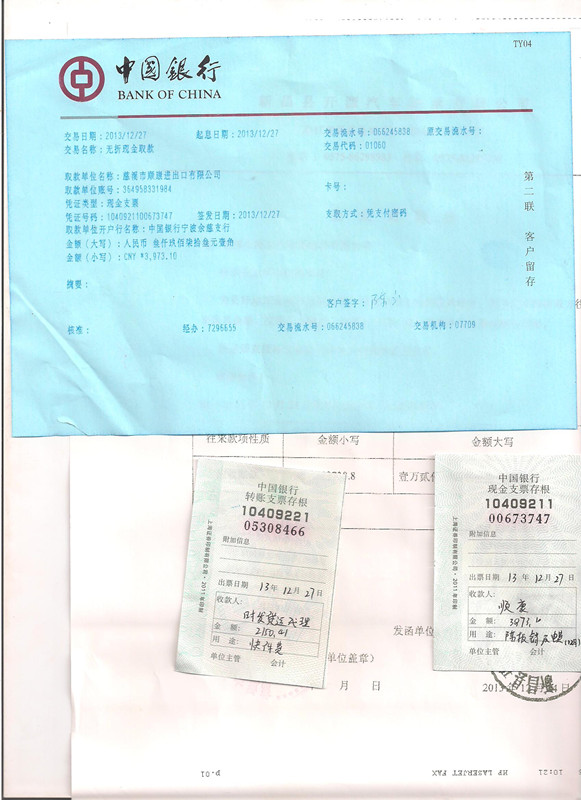 TY04
中国银行
BANK OF CHINA
交易日期：2013/12/27 起息日期：2013/12/27 交易流水号：066245838 原交易流水号：
交易名称：无折现金取款 交易代码：01060
取款单位名称：慈溪市顺璟进出口有限公司
取款单位账号：364958331984 卡号：
凭证类型：现金支票
凭证号码：1040921100673747 签发日期：2013/12/27 支取方式：凭支付密码
取款单位开户行名称：中国银行宁波余慈支行
金额（大写）：人民币 叁仟玖佰柒拾叁元壹角
金额（小写）：CNY *3,973.10
摘要：
客户签字：
核准： 经办：7296655 交易流水号：066245838 交易机构：07709
第二联 客户留存
往来款项性质 金额小写 金额大写
.8 壹万贰
中国银行
转账支票存根
10409221
05308466
附加信息
出票日期 13年12月27日
收款人：
金额：2150.41
用途：快件费
单位主管 会计
上海证券印制有限公司·2011年印制
中国银行
现金支票存根
10409211
00673747
附加信息
出票日期 13年12月27日
收款人：
金额：3973.1
用途：
单位主管 会计
上海证券印制有限公司·2011年印制
发函单位
单位盖章）
月 日
p.01 HP LASERJET FAX 10:21